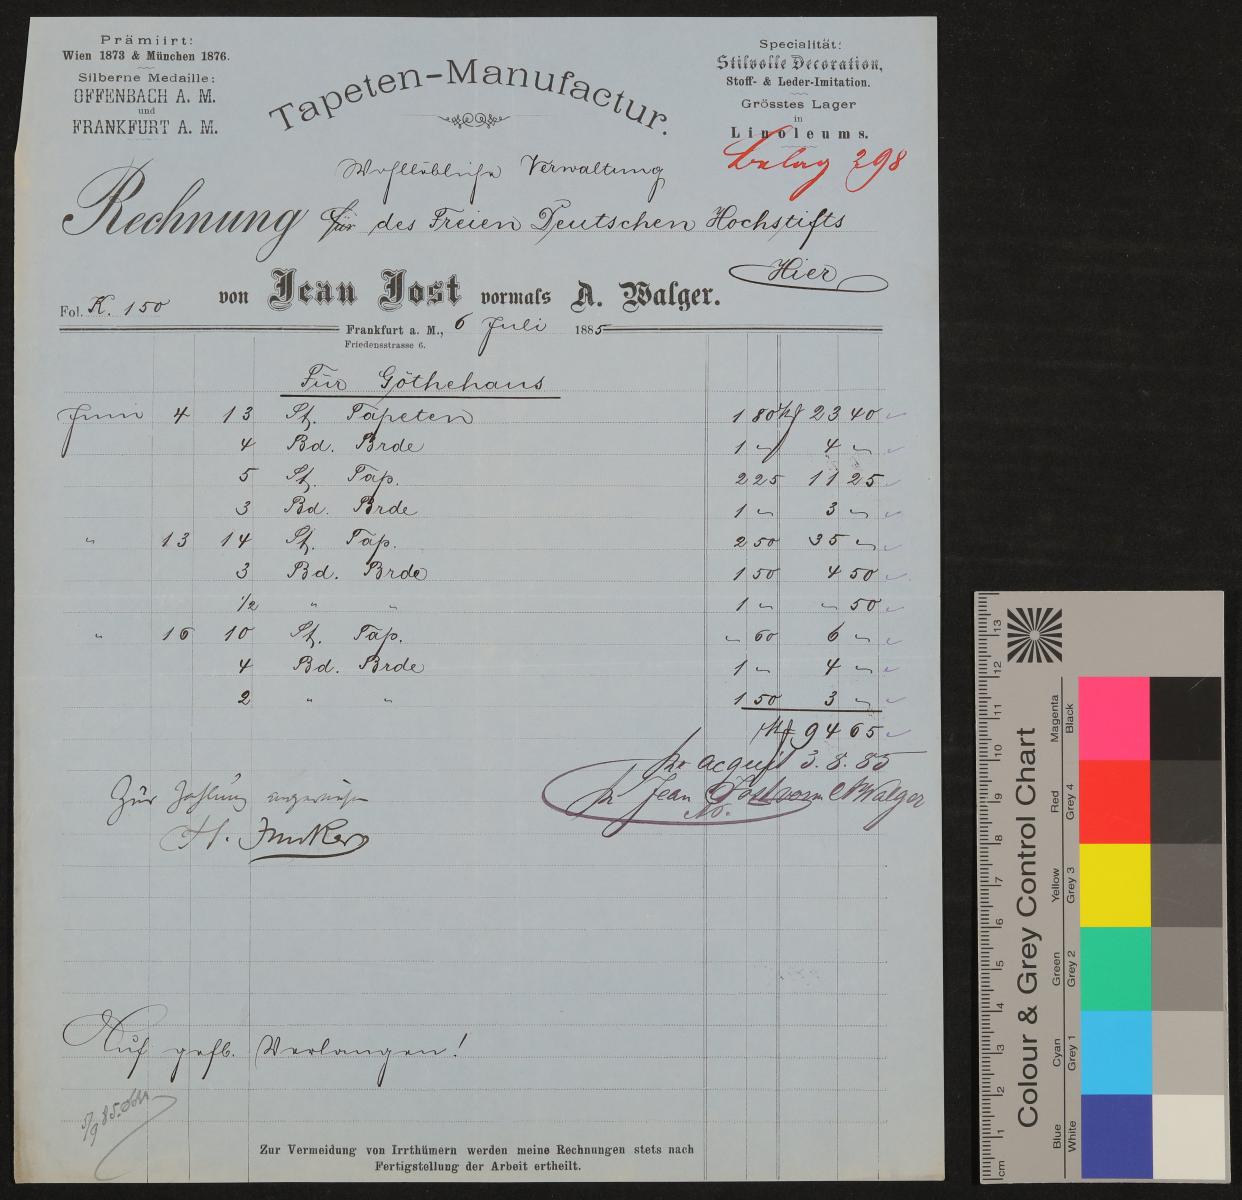 Prämiirt:
Wien 1873 & München 1876.
Silberne Medaille:
OFFENBACH A. M.
und
FRANKFURT A. M.
Tapeten-Manufactur.
Specialität:
Stilvolle Decoration,
Stoff- & Leder-Imitation.
Grösstes Lager
in
Linoleums.
Belag 298
Wohllöbliche Verwaltung
Rechnung für des Freien Deutschen Hochstifts
Hier
von Jean Jost vormals A. Walger.
Fol. K. 150
Frankfurt a. M., 6 Juli 1885
Friedensstrasse 6.
Für Göthehaus
Juni 4 13 St. Tapeten 1 80 M 23 40
4 Bd. Brde 1 " 4 "
5 St. Tap. 2 25 11 25
3 Bd. Brde 1 " 3 "
" 13 14 St. Tap. 2 50 35 "
3 Bd. Brde 1 50 4 50
1/2 " " 1 " " 50
" 16 10 St. Tap. " 60 6 "
4 Bd. Brde 1 " 4 "
2 " " 1 50 3 "
M 94 65
pr acquit 3. 8. 85
Zur Zahlung angewiesen
pr Jean Jost vorm A Walger
H. Junker
Auf gefl. Verlangen!
Zur Vermeidung von Irrthümern werden meine Rechnungen stets nach
Fertigstellung der Arbeit ertheilt.
Colour & Grey Control Chart
Magenta Black
Red Grey 4
Yellow Grey 3
Green Grey 2
Cyan Grey 1
Blue White
cm 1 2 3 4 5 6 7 8 9 10 11 12 13